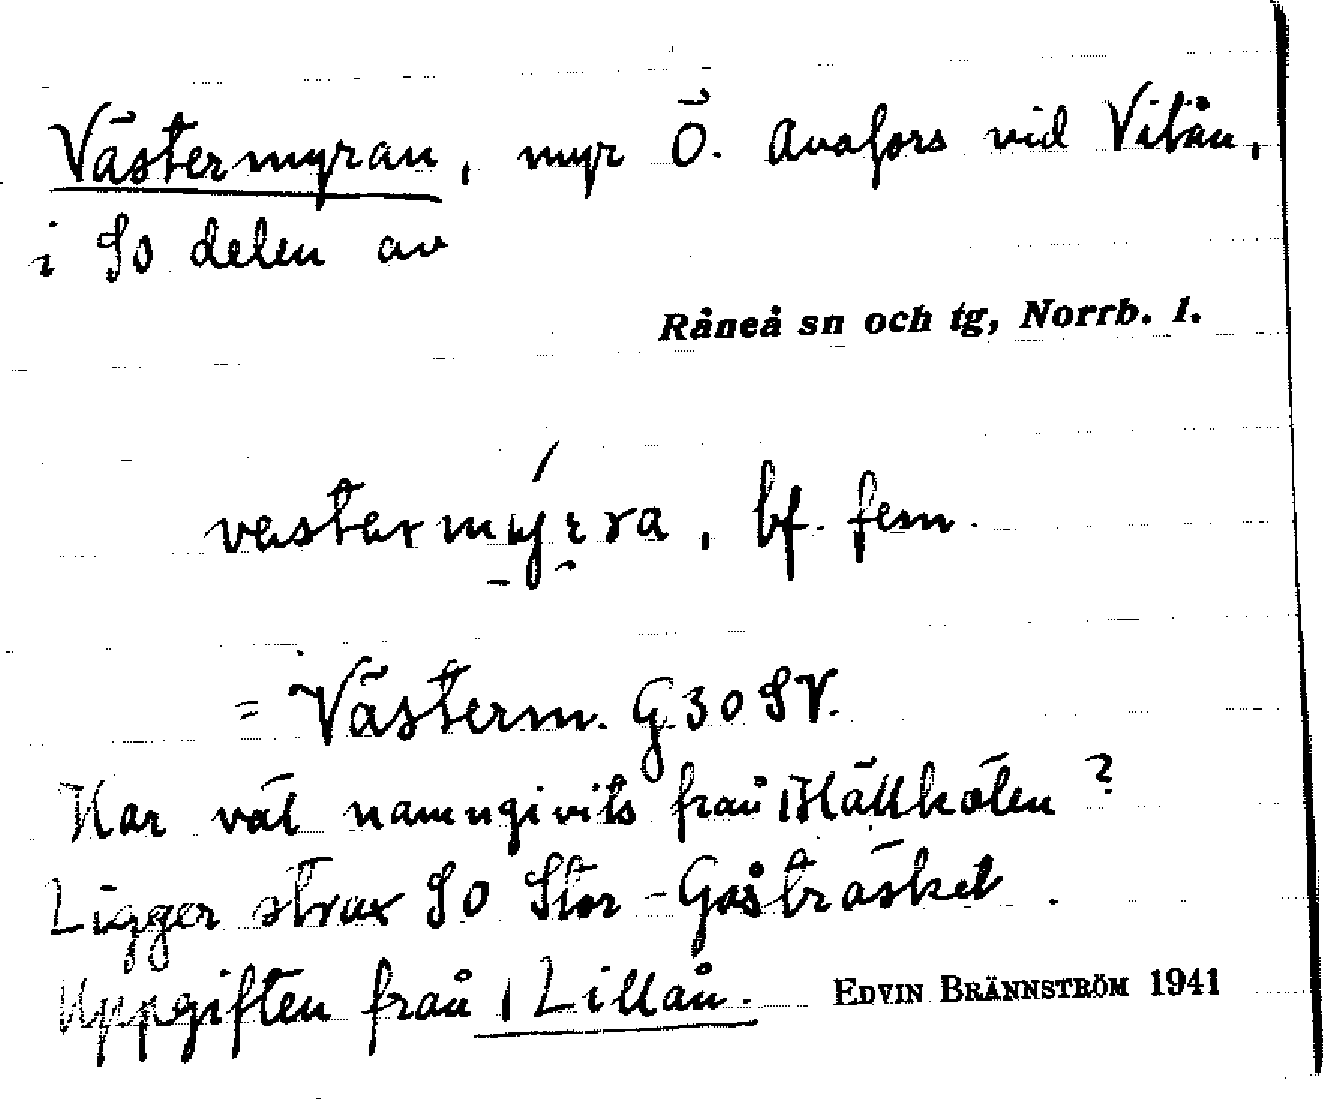 Västermyran, myr Ö. Avafors vid Vitån,
i SO delen av
Råneå sn och tg, Norrb. l.
vestermýrra, bf. fem.
= Västerm. G 30 SV.
Har väl namngivits från Hällholen ?
Ligger strax SO Stor-Gåsträsket.
Uppgiften från Lillån. EDVIN BRÄNNSTRÖM 1941